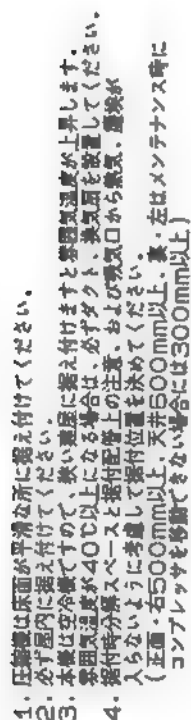 1. 圧縮機は床面が平滑な所に据え付けてください。
2. 必ず屋内に据え付けてください。
3. 本機は空冷機ですので、狭い部屋に据え付けますと雰囲気温度が上昇します。
雰囲気温度が40℃以上になる場合は、必ずダクト、換気扇を設置してください。
4. 据付時分解スペースと据付配管上の注意、および吸気口から熱気、塵埃が
入らないように考慮して据付位置を決めてください。
(正面・右500mm以上、天井600mm以上、裏・左はメンテナンス時に
コンプレッサを移動できない場合には300mm以上)